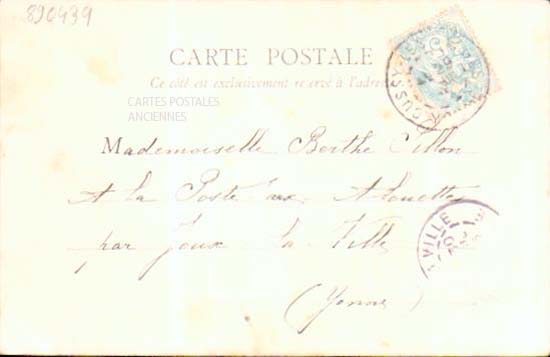 890439
CARTE POSTALE
Ce côté est exclusivement réservé à l'adres
CARTES POSTALES
ANCIENNES
Mademoiselle Berthe Tillon
A la Poste aux Alouettes
par Joux la Ville
(Yonne)
VILLE